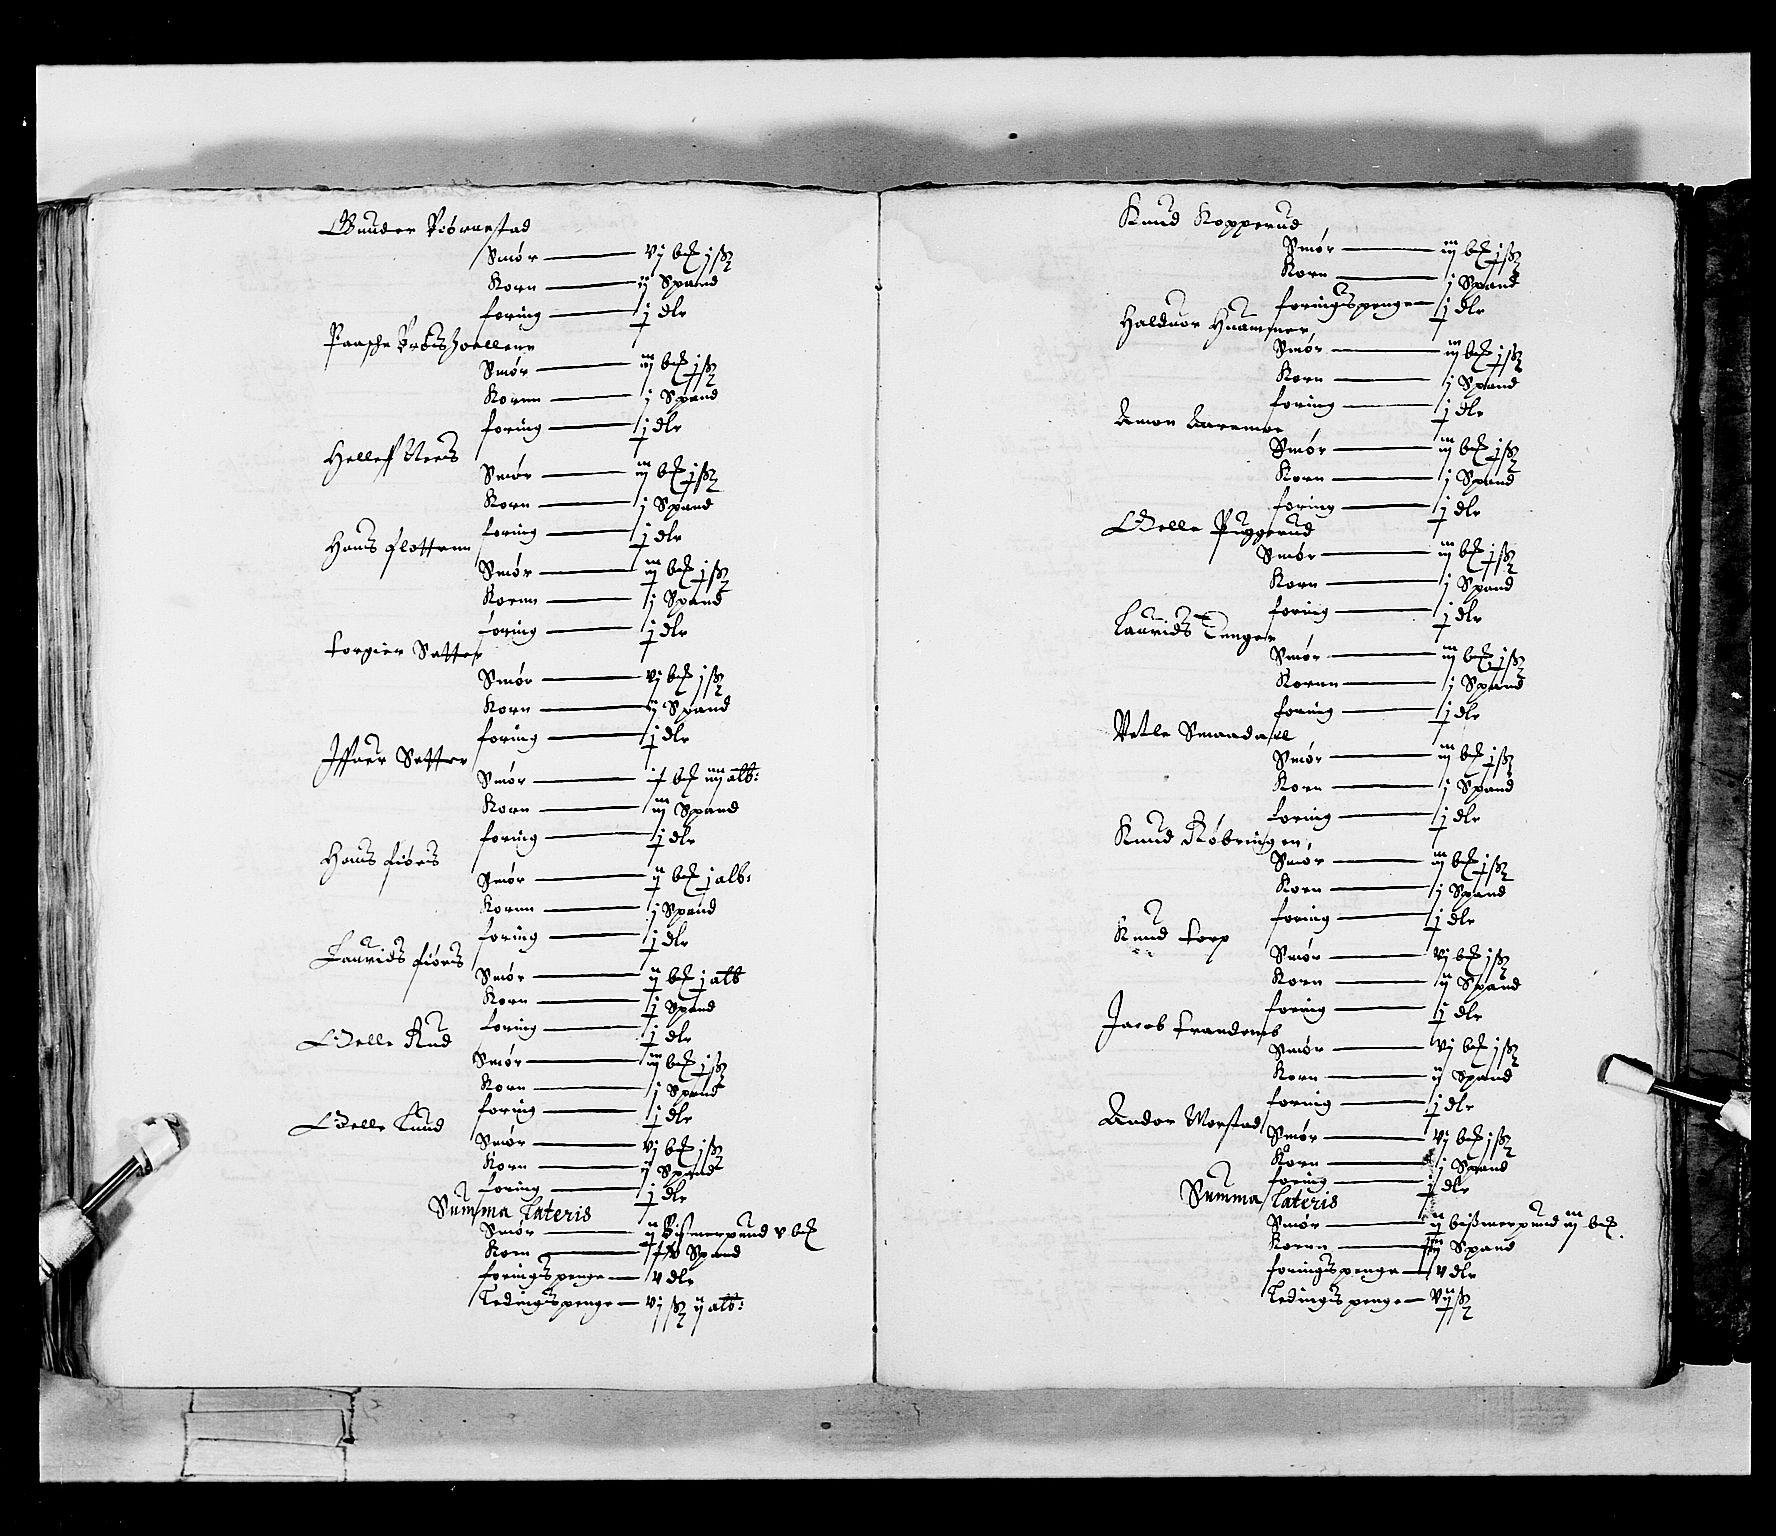 Gunder Biørnestad
Smør — vj b℔ j ß
Korn — ij Spand
foring — j dlr
Paasche
Smør — iij b℔ j ß
Kornn — j Spand
foring — j dlr
Hellef Nees
Smør — iij b℔ j ß
Korn — j Spand
foring — j dlr
Hans flottenn
Smør — iij b℔ j ß
Kornn — j Spand
foring — j dlr
Torgier Setter
Smør — vj b℔ j ß
Korn — ij Spand
foring — j dlr
Iffuer Setter
Smør — b℔ iiij alb:
Korn — iij Spand
foring — j dlr
Hans fiøris
Smør — ij b℔ j alb:
Kornn — j Spand
foring — j dlr
Laurids fiøris
Smør — ij b℔ j alb
Korn — j Spand
foring — j dlr
Oelle Rud
Smør — iij b℔ j ß
Korn — j Spand
foring — j dlr
Oelle Lund
Smør — vj b℔ j ß
Korn — ij Spand
foring — j dlr
Summa Lateris
Smør — ij Bismerpund v b℔
Korn — Spand
foringspenge — v dlr
Ledingspenge — vj ß ij alb:
Knud Kopperud
Smør — iij b℔ j ß
Korn — j Spand
foringspenge — j dlr
Halduor Huammer
Smør — iij b℔ j ß
Korn — j Spand
foring — j dlr
Amon Aaremoe
Smør — iij b℔ j ß
Korn — j Spand
foring — j dlr
Oelle Puggerud
Smør — iij b℔ j ß
Korn — j Spand
foring — j dlr
Laurids Tenger
Smør — iij b℔ j ß
Kornn — j Spand
foring — j dlr
Vetle Smaadall
Smør — iij b℔ j ß
Korn — j Spand
foring — j dlr
Knud Købringen
Smør — iij b℔ j ß
Korn — j Spand
foring — j dlr
Knud Torp
Smør — vj b℔ j ß
Korn — ij Spand
foring — j dlr
Jacob Trandemb
Smør — vj b℔ j ß
Korn — ij Spand
foring — j dlr
Andor Morstad
Smør — vj b℔ j ß
Korn — j Spand
foring — j dlr
Summa Lateris
Smør — ij bismerpund iij b℔
Kornn — Spand
foringspenge — v dlr
Ledingspenge — vij ß